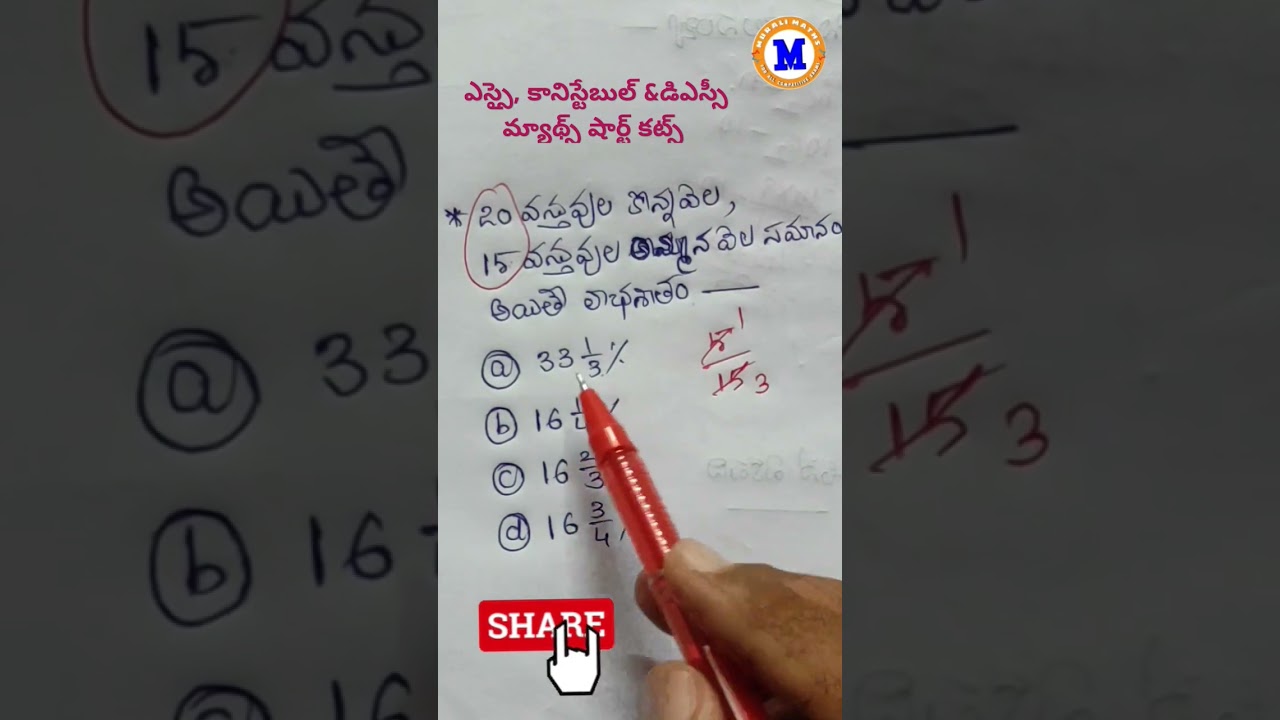 MURALI MATHS
M
ఎస్సై, కానిస్టేబుల్ &డిఎస్సీ
మ్యాథ్స్ షార్ట్ కట్స్
* 20 వస్తువుల కొన్నవెల,
15 వస్తువుల అమ్మినవెల సమానం
అయితే లాభశాతం ——
(a) 33 1/3 %
5 1
15 3
(b) 16
(c) 16 2/3
(d) 16 3/4 %
SHARE